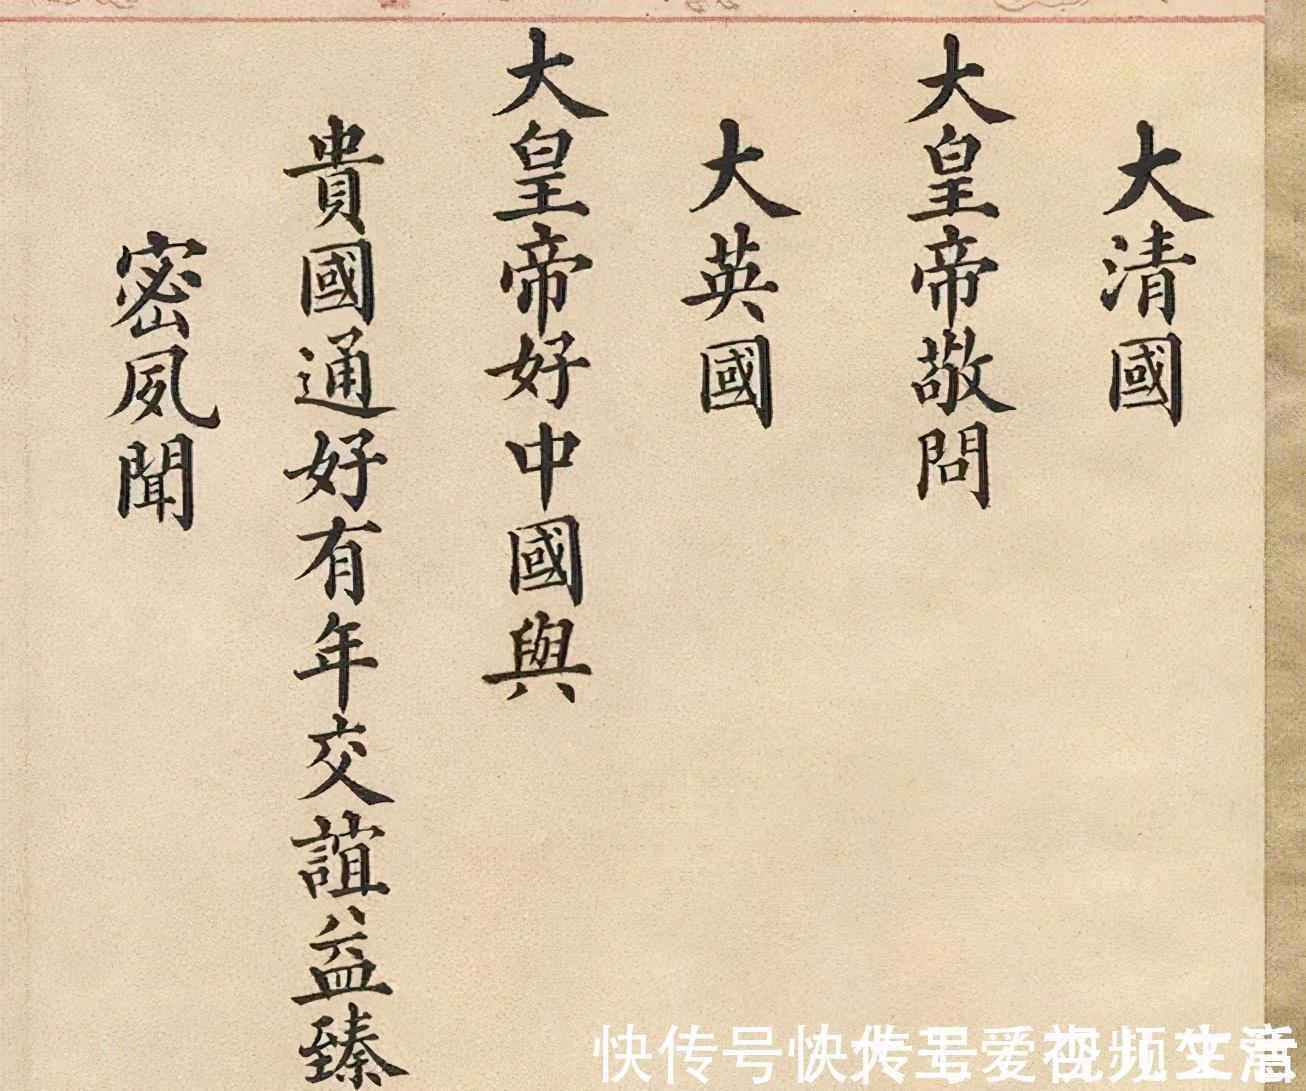 大清國
大皇帝敬問
大英國
大皇帝好中國與
貴國通好有年交誼益臻
密夙聞
快传号